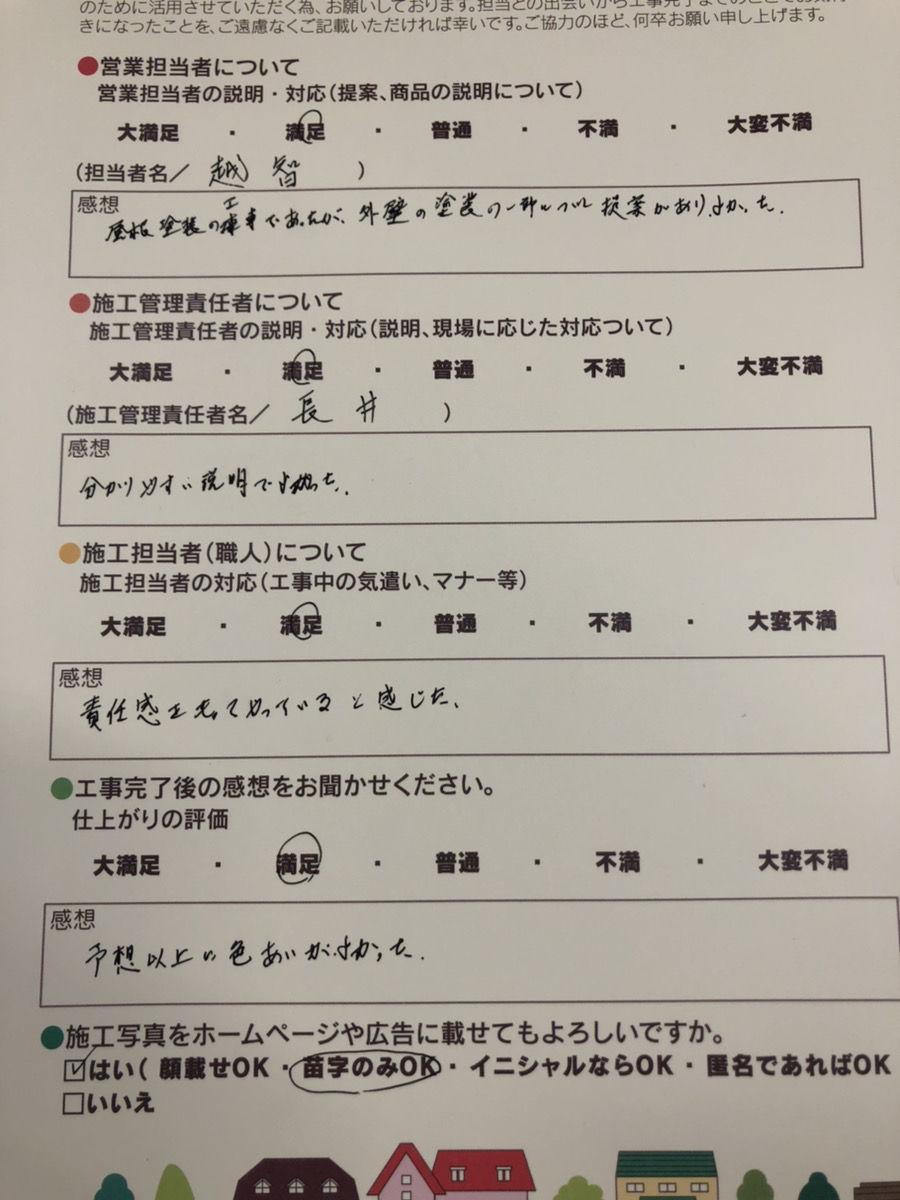 のために活用させていただく為、お願いしております。担当との出会いから工事完了までのことでお気付
きになったことを、ご遠慮なくご記載いただければ幸いです。ご協力のほど、何卒お願い申し上げます。
●営業担当者について
営業担当者の説明・対応(提案、商品の説明について)
大満足 ・ 満足 ・ 普通 ・ 不満 ・ 大変不満
(担当者名/ 越智 )
感想
屋根塗装の工事であったが、外壁の塗装の一部について提案がありよかった。
●施工管理責任者について
施工管理責任者の説明・対応(説明、現場に応じた対応ついて)
大満足 ・ 満足 ・ 普通 ・ 不満 ・ 大変不満
(施工管理責任者名/ 長井 )
感想
分かりやすい説明でよかった。
●施工担当者(職人)について
施工担当者の対応(工事中の気遣い、マナー等)
大満足 ・ 満足 ・ 普通 ・ 不満 ・ 大変不満
感想
責任感をもってやっていると感じた。
●工事完了後の感想をお聞かせください。
仕上がりの評価
大満足 ・ 満足 ・ 普通 ・ 不満 ・ 大変不満
感想
予想以上に色あいがよかった。
●施工写真をホームページや広告に載せてもよろしいですか。
☑はい( 顔載せOK ・ 苗字のみOK ・ イニシャルならOK ・ 匿名であればOK
□いいえ